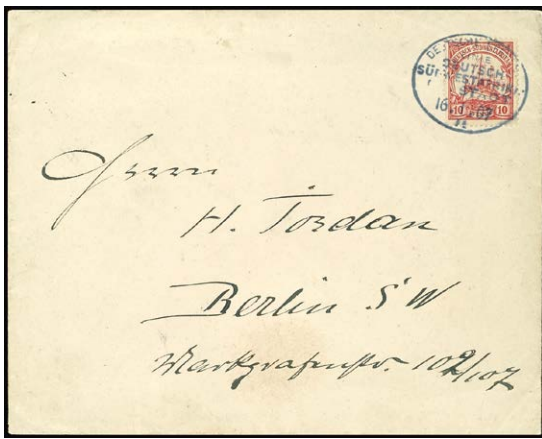 DEUTSCH
SÜDWESTAFRIKA
10 10
Herrn
H. Jordan
Berlin SW
Markgrafenstr. 102/107